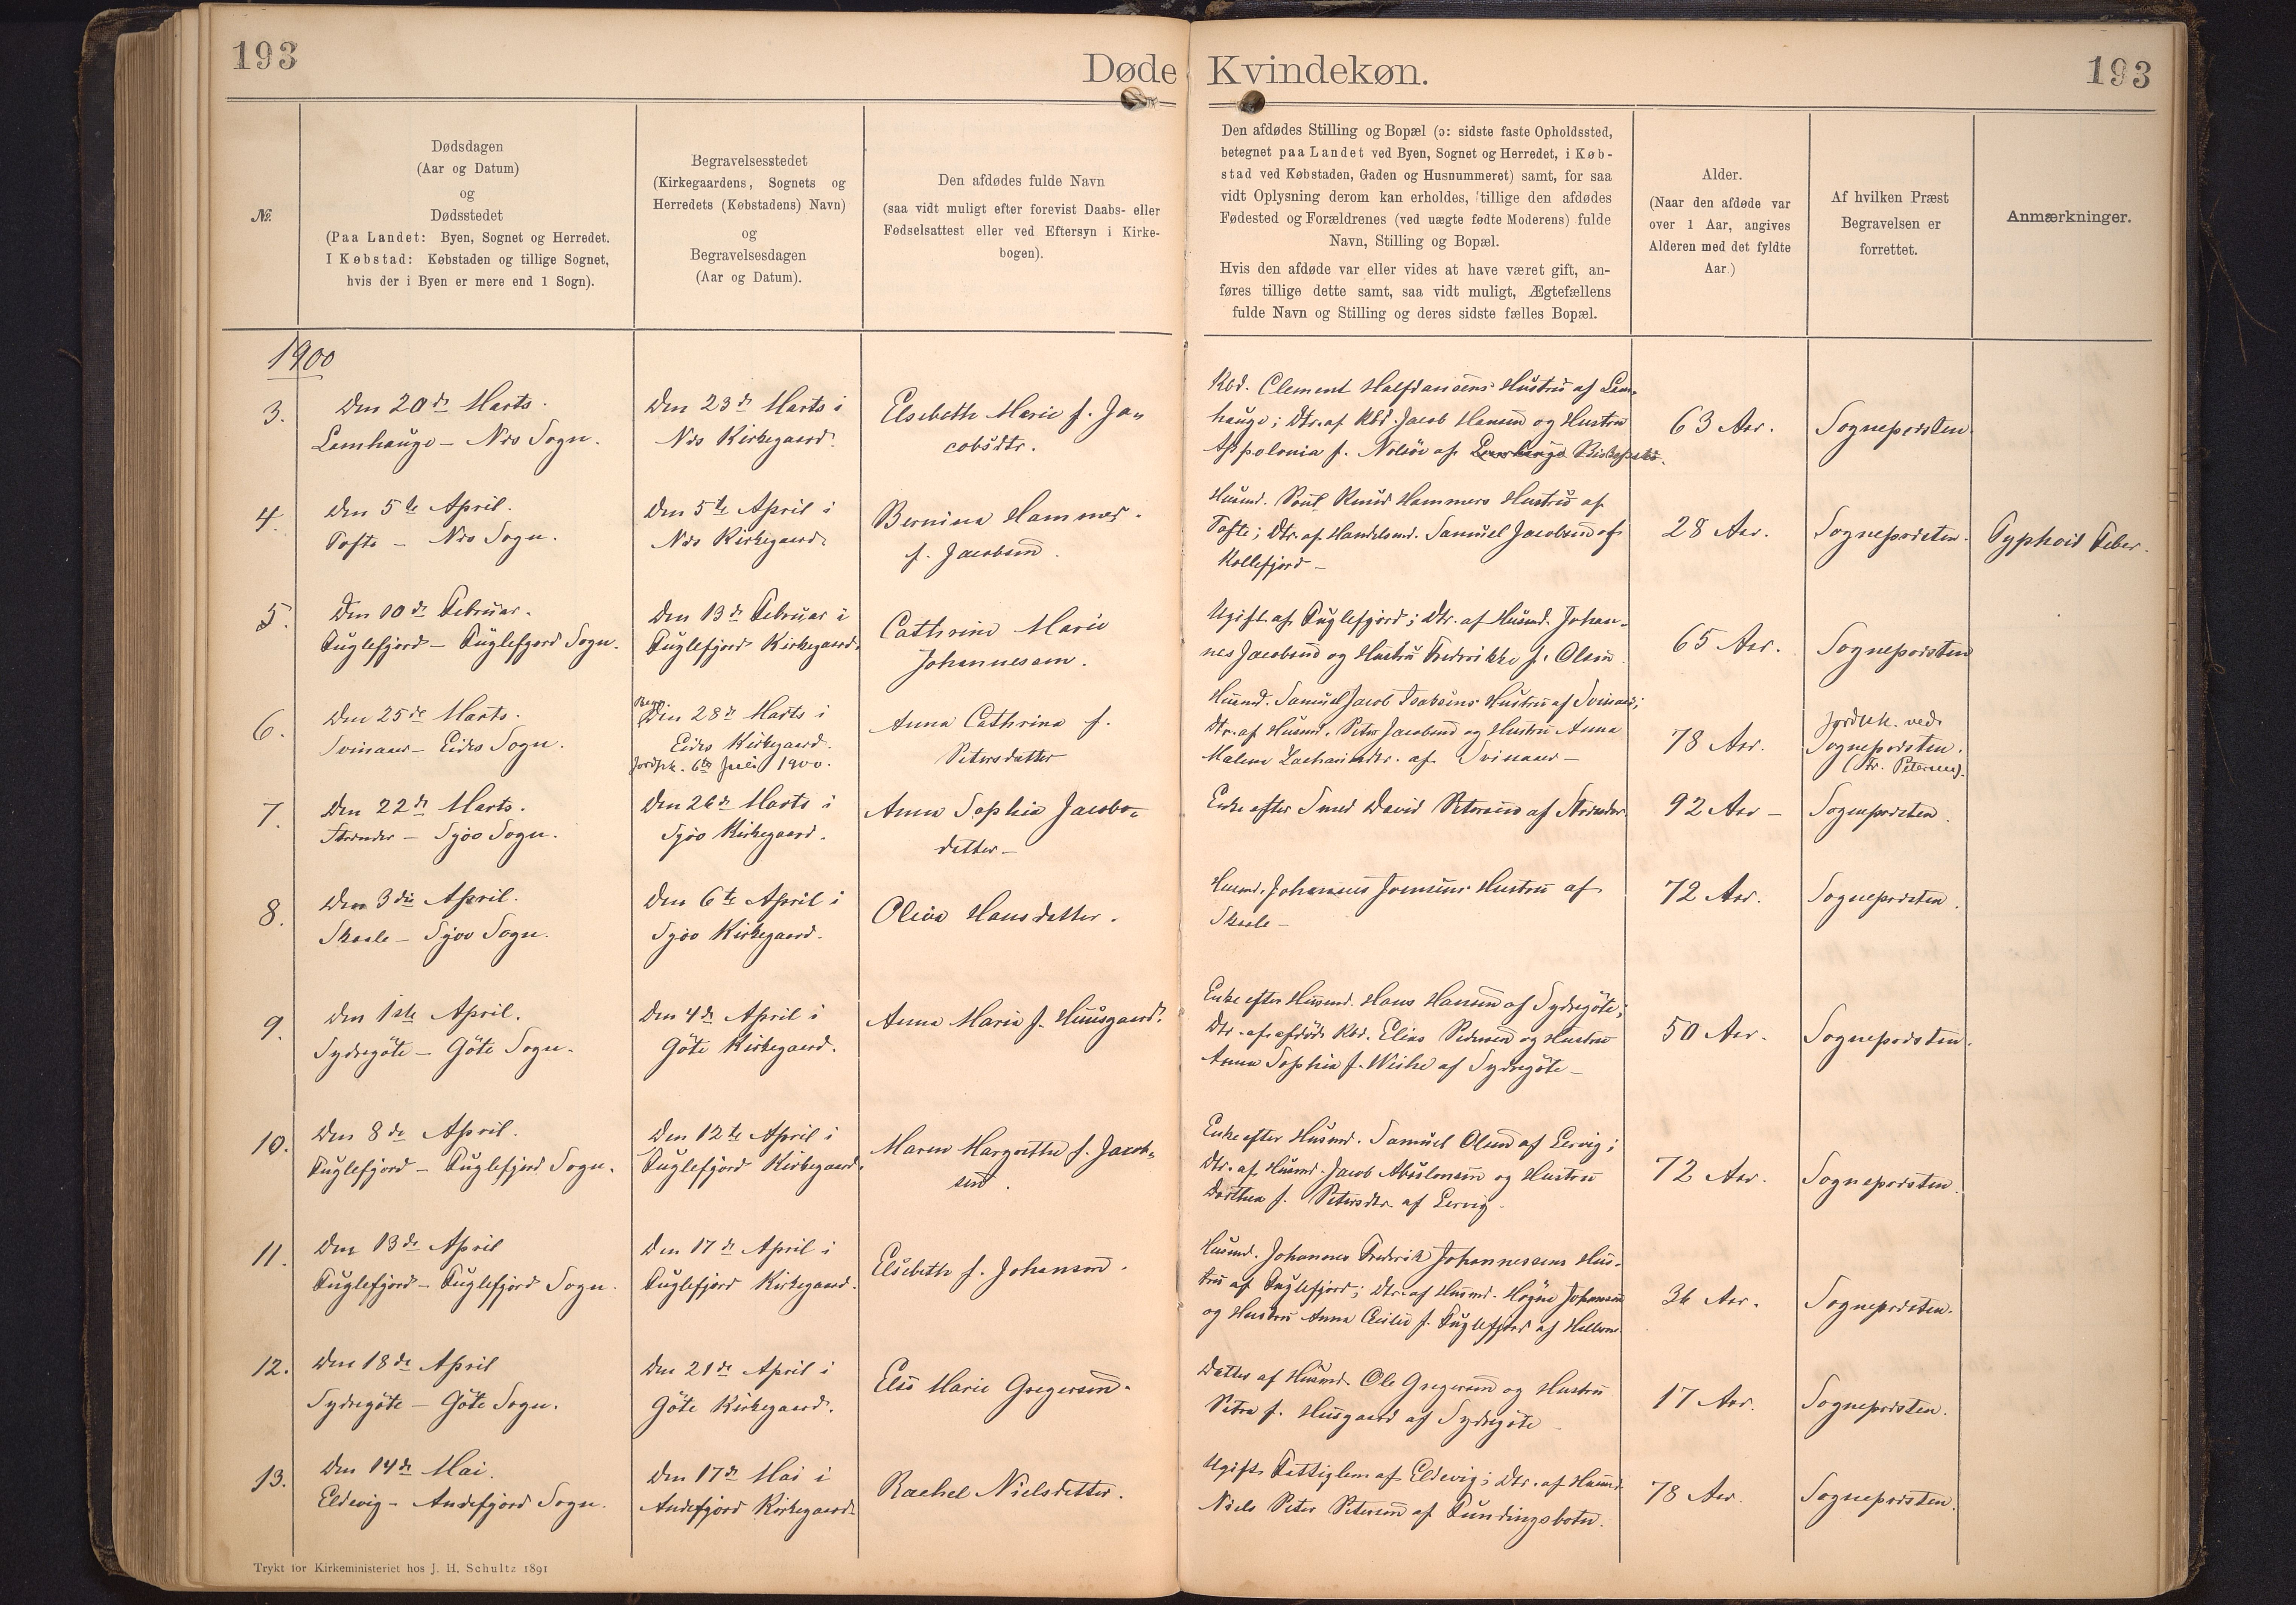 193
Døde Kvindekøn.
193
№.
Dødsdagen
(Aar og Datum)
og
Dødsstedet
(Paa Landet: Byen, Sognet og Herredet.
I Købstad: Købstaden og tillige Sognet,
hvis der i Byen er mere end 1 Sogn).
Begravelsesstedet
(Kirkegaardens, Sognets og
Herredets (Købstadens) Navn)
og
Begravelsesdagen
(Aar og Datum).
Den afdødes fulde Navn
(saa vidt muligt efter forevist Daabs- eller
Fødselsattest eller ved Eftersyn i Kirke-
bogen).
Den afdødes Stilling og Bopæl (ɔ: sidste faste Opholdssted,
betegnet paa Landet ved Byen, Sognet og Herredet, i Køb-
stad ved Købstaden, Gaden og Husnummeret) samt, for saa
vidt Oplysning derom kan erholdes, tillige den afdødes
Fødested og Forældrenes (ved uægte fødte Moderens) fulde
Navn, Stilling og Bopæl.
Hvis den afdøde var eller vides at have været gift, an-
føres tillige dette samt, saa vidt muligt, Ægtefællens
fulde Navn og Stilling og deres sidste fælles Bopæl.
Alder.
(Naar den afdøde var
over 1 Aar, angives
Alderen med det fyldte
Aar.)
Af hvilken Præst
Begravelsen er
forrettet.
Anmærkninger.
1900
3.
Den 20de Marts.
Lamhauge - Næs Sogn.
Den 23de Marts i
Næs Kirkegaard.
Elsebeth Marie f. Ja-
cobsdtr.
Kbd. Clement Halfdansens Hustru af Lam-
hauge; Dtr. af Kbd. Jacob Hansen og Hustru
Appolonia f. Nolsöe af Lamhauge
63 Aar.
Sognepræsten.
4.
Den 5te April.
Tofte - Næs Sogn.
Den 5te April i
Næs Kirkegaard.
Bernina Hammer
f. Jacobsen.
Husmd. Poul Knud Hammers Hustru af
Tofte; Dtr. af Handelsmd. Samuel Jacobsen af
Kollefjord -
28 Aar.
Sognepræsten.
Typhoid Feber.
5.
Den 10de Februar.
Fuglefjord - Fuglefjord Sogn.
Den 13de Februar i
Fuglefjord Kirkegaard.
Cathrine Marie
Johannesen.
Ugift af Fuglefjord; Dtr. af Husmd. Johan-
nes Jacobsen og Hustru Frederikke f. Olsen
65 Aar.
Sognepræsten
6.
Den 25de Marts.
Svinaaer - Eides Sogn.
Begr.
Den 28de Marts i
Eides Kirkegaard.
Jordpk. 6te Juli 1900.
Anna Cathrina f.
Petersdatter
Husmd. Samuel Jacob Isaksens Hustru af Svinaaer;
Dtr. af Husmd. Peter Jacobsen og Hustru Anna
Malene Zachariasdtr. af Svinaaer -
78 Aar.
Jordpk. ved
Sognepræsten.
(Fr. Petersen).
7.
Den 22de Marts.
Strender - Sjøv Sogn.
Den 26de Marts i
Sjøv Kirkegaard.
Anna Sophia Jacobs-
datter -
Enke efter Smed David Petersen af Strender.
92 Aar -
Sognepræsten.
8.
Den 3die April.
Skaale - Sjøv Sogn.
Den 6te April i
Sjøv Kirkegaard.
Oliva Hansdatter.
Husmd. Johannes Joensens Hustru af
Skaale -
72 Aar.
Sognepræsten.
9.
Den 1ste April.
Sydregöte - Göte Sogn.
Den 4de April i
Göte Kirkegaard.
Anna Maria f. Huusgaard.
Enke efter Husmd. Hans Hansen af Sydregöte;
Dtr. af afdöde Kbd. Elias Pedersen og Hustru
Anna Sophia f. Weihe af Sydregöte -
50 Aar.
Sognepræsten.
10.
Den 8de April.
Fuglefjord - Fuglefjord Sogn.
Den 12te April i
Fuglefjord Kirkegaard.
Maren Margrethe f. Jacob-
sen.
Enke efter Husmd. Samuel Olsen af Lervig;
Dtr. af Husmd. Jacob Absalonsen og Hustru
Dorthea f. Petersdtr. af Lervig.
72 Aar.
Sognepræsten.
11.
Den 13de April
Fuglefjord - Fuglefjord Sogn.
Den 17de April i
Fuglefjord Kirkegaard.
Elsebeth f. Johansen.
Husmd. Johannes Frederik Johannessens Hus-
tru af Fuglefjord; Dtr. af Husmd. Högne Johansen
og Hustru Anna Cecilie f. Fuglefjord af Hellerne.
36 Aar.
Sognepræsten.
12.
Den 18de April
Sydregöte - Göte Sogn.
Den 21de April i
Göte Kirkegaard.
Else Marie Gregersen.
Datter af Husmd. Ole Gregersen og Hustru
Petra f. Husgaard af Sydregöte -
17 Aar.
Sognepræsten.
13.
Den 14de Mai.
Eldevig - Andefjord Sogn.
Den 17de Mai i
Andefjord Kirkegaard.
Rachel Nielsdatter.
Ugift Fattiglem af Eldevig; Dtr. af Husmd.
Niels Peter Petersen af Fundingsbotn.
78 Aar.
Sognepræsten.
Trykt for Kirkeministeriet hos J. H. Schultz 1891